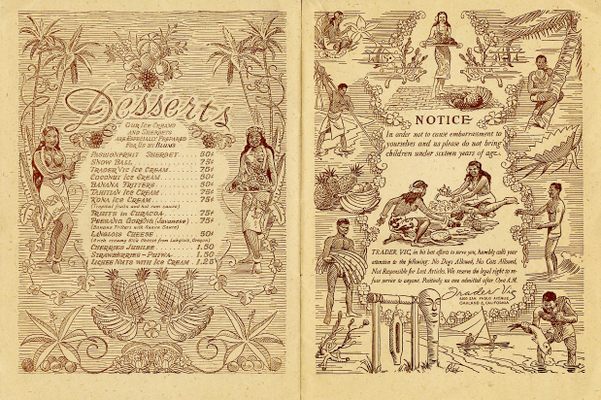 Desserts
Our Ice Creams
and Sherbets
are Especially Prepared
For Us by Blums
Passionfruit Sherbet . . . . 50¢
Snow Ball . . . . 75¢
Trader Vic Ice Cream . . . . 75¢
Coconut Ice Cream . . . . 50¢
Banana Fritters . . . . 50¢
Tahitian Ice Cream . . . . 75¢
Kona Ice Cream . . . . 75¢
(Tropical fruits and hot rum sauce)
Fruits in Curacoa . . . . 75¢
Peesang Goreng (Javanese) . . 75¢
(Banana Fritters with Sauce)
Langlois Cheese . . . . 50¢
(from Langlois, Oregon)
Cherries Jubilee . . . . 1.50
Strawberries . . . . 1.50
Lichee Nuts with Ice Cream . 1.25
NOTICE
In order not to cause embarrassment to
yourselves and us please do not bring
children under sixteen years of age.
TRADER VIC, in his best efforts to serve you, humbly calls your
attention to the following: No Dogs Allowed, No Cats Allowed,
Not Responsible for Lost Articles. We reserve the legal right to re-
fuse service to anyone. Positively no one admitted after One A.M.
Trader Vic
6500 SAN PABLO AVENUE
OAKLAND 8, CALIFORNIA